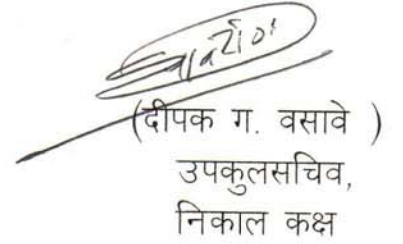 (दीपक ग. वसावे )
उपकुलसचिव,
निकाल कक्ष